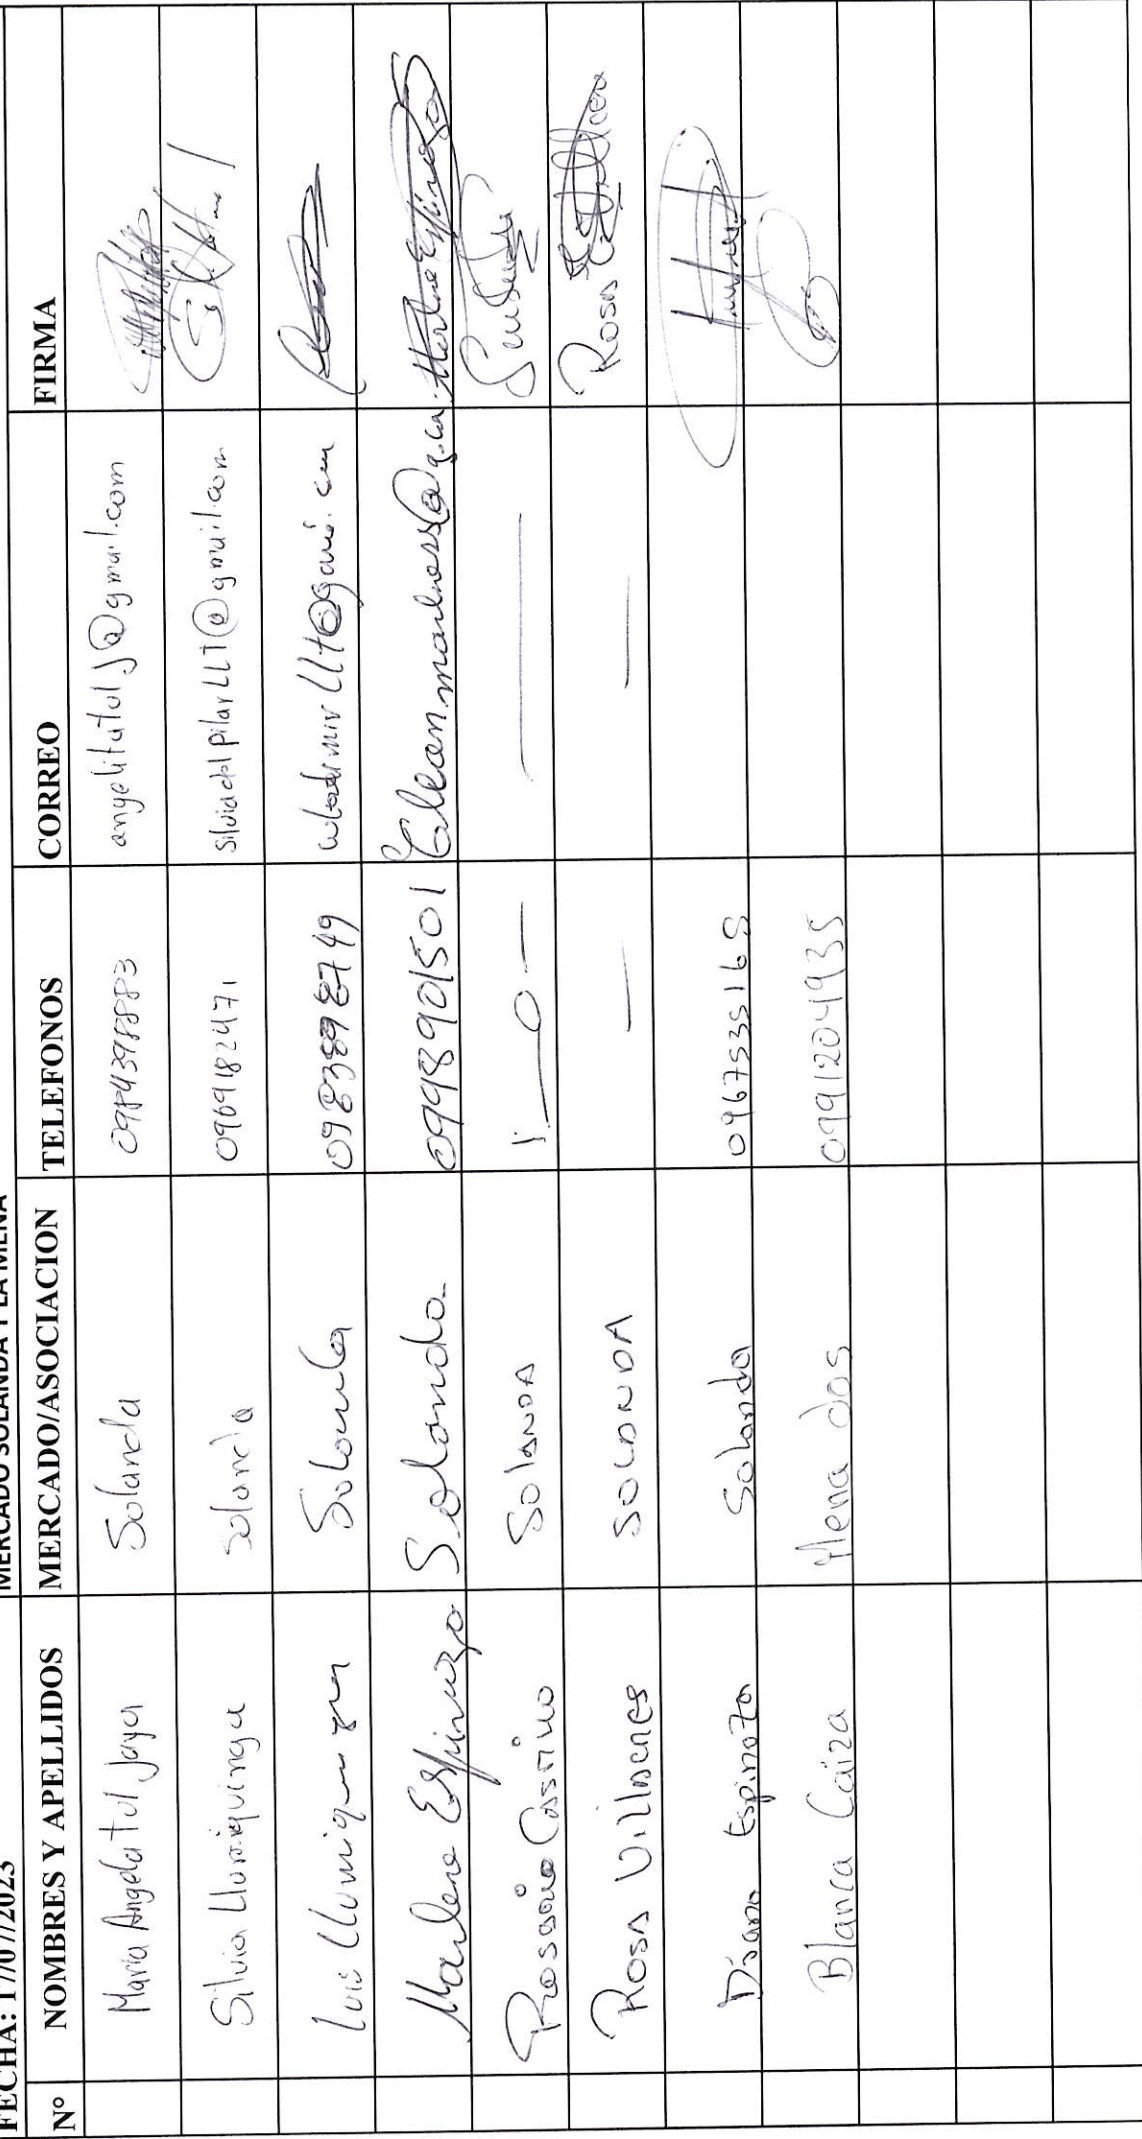 FECHA: 17/07/2023 MERCADO SOLANDA Y LA MENA
Nº NOMBRES Y APELLIDOS MERCADO/ASOCIACION TELEFONOS CORREO FIRMA
Maria Angela tul Jaya Solanda 0984398883 angelitatulj@gmail.com
Silvia Llumiquinga Solanda 0969182471 silviadelpilarLLT@gmail.com
Luis Llumiquinga Solanda 0983898749
Marlene Espinoza Solanda 0998901501
Rosario Casstino SolanDA 1——0—— ———
Rosa Villacnes SOLANDA — — Rosa
Diana Espinoza Solanda 0967535165
Blanca Caiza Mena dos 0991204935